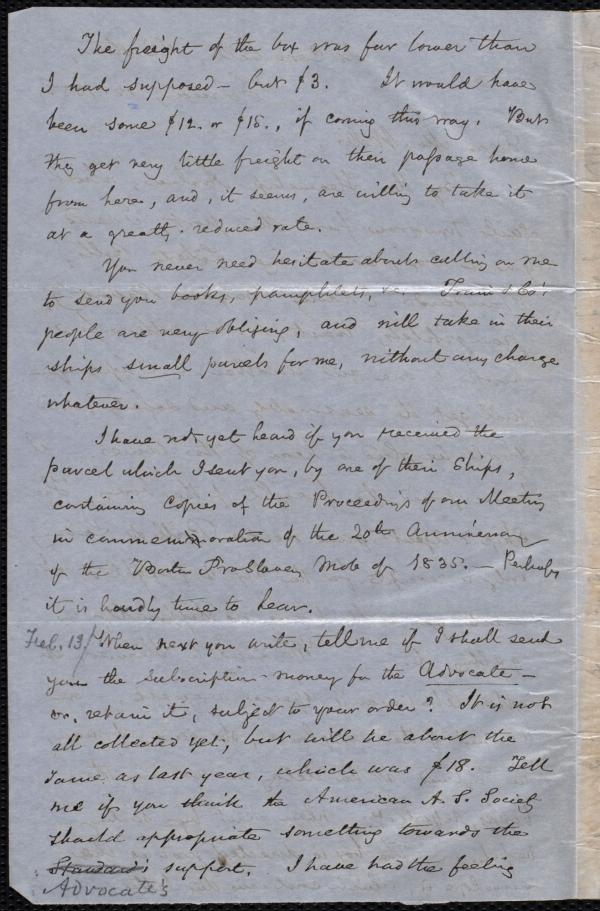 The freight of the box was far lower than
I had supposed - but $3. It would have
been some $12. or $15., if coming this way. But
they get very little freight on their passage home
from here, and, it seems, are willing to take it
at a greatly reduced rate.
You never need hesitate about calling on me
to send you books, pamphlets, &c. Train & Co's
people are very obliging, and will take in their
ships small parcels for me, without any charge
whatever.
I have not yet heard if you received the
parcel which I sent you, by one of their Ships,
containing Copies of the Proceedings of our Meeting
in commemoration of the 20th Anniversary
of the Boston ProSlavery Mob of 1835. - Perhaps
it is hardly time to hear.
Feb. 13/ When next you write, tell me if I shall send
you the subscription-money for the Advocate -
or, retain it, subject to your order? It is not
all collected yet, but will be about the
same as last year, which was $18. Tell
me if you think the American A. S. Society
should appropriate something towards the
Standard's support. I have had the feeling
Advocate's